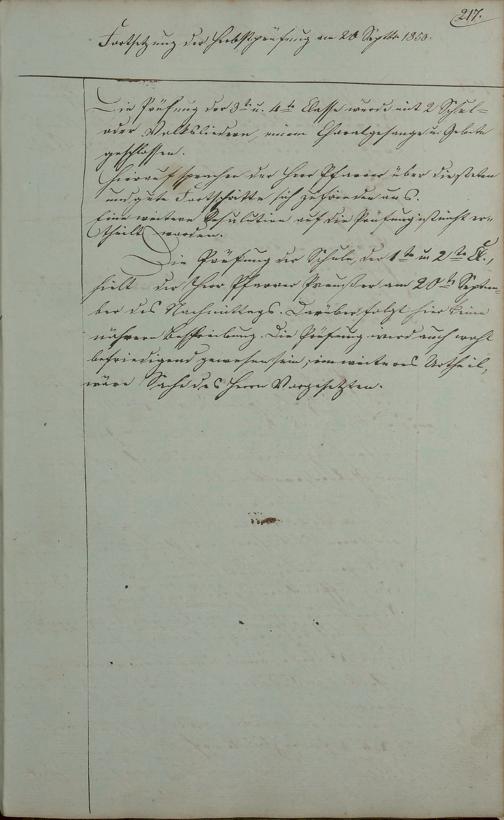 217.
Fortsetzung der Herbstprüfung am 20 Septbr 1860.
Die Prüfung der 3te u. 4te Classe wurde mit 2 Schul=
oder Volksliedern, einem Choralgesange u. Gebete
geschlossen.
Hierauf sprach der Herr Pfarrer über
und gute Fortschritte sich zufrieden aus.
Eine weitere Resolution auf die Prüfung ist nicht er=
theilt worden.
Die Prüfung der Schule, der 1te u. 2te Cl.,
hielt der Herr Pfarrer am 20te Septem=
ber des Nachmittags. Darüber folgt hier keine
nähere Beschreibung. Die Prüfung wird auch wohl
befriedigend gewesen sein; ein weiteres Urtheil,
wäre Sache des Herrn Vorgesetzten.